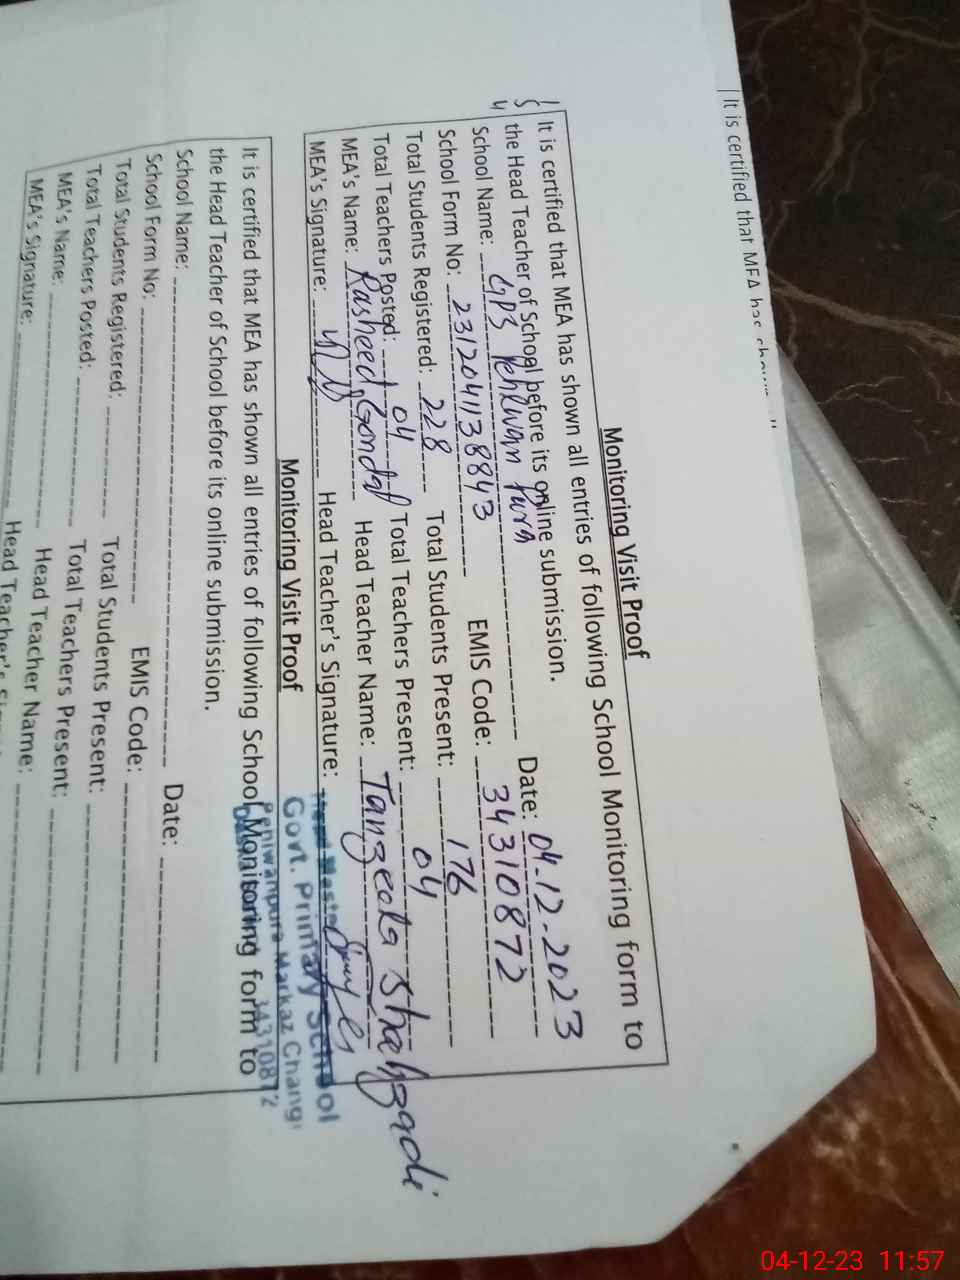 It is certified that MEA has
Monitoring Visit Proof
It is certified that MEA has shown all entries of following School Monitoring form to
the Head Teacher of School before its online submission.
School Name: GPS Pehlwan Pura Date: 04-12-2023
School Form No: 2312041138843 EMIS Code: 34310872
Total Students Registered: 228 Total Students Present: 176
Total Teachers Posted: 04 Total Teachers Present: 04
MEA's Name: Rasheed Gondal Head Teacher Name: Tanzeela Shahzadi
MEA's Signature: Head Teacher's Signature:
Head Master
Govt. Primary School
Pehlwanpura Markaz Chang
34310872
Monitoring Visit Proof
It is certified that MEA has shown all entries of following School Monitoring form to
the Head Teacher of School before its online submission.
School Name: Date:
School Form No: EMIS Code:
Total Students Registered: Total Students Present:
Total Teachers Posted: Total Teachers Present:
MEA's Name: Head Teacher Name:
MEA's Signature: Head Teacher's
04-12-23 11:57